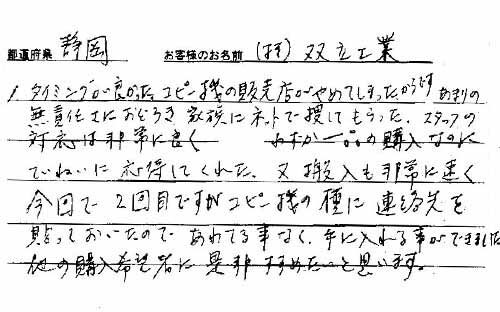 都道府県 静岡 お客様のお名前 (有) 双立工業
1. タイミングが良かった、コピー機の販売店がやめてしまったからです あまりの
無責任さにおどろき 家族にネットで捜してもらった。スタッフの
対応は非常に良く わずか一台の購入なのに
ていねいに応待してくれた。又搬入も非常に速く
今回で2回目ですがコピー機の横に連絡先を
貼っておいたので あわてる事なく、手に入れる事ができました
他の購入希望者に是非すすめたいと思います。